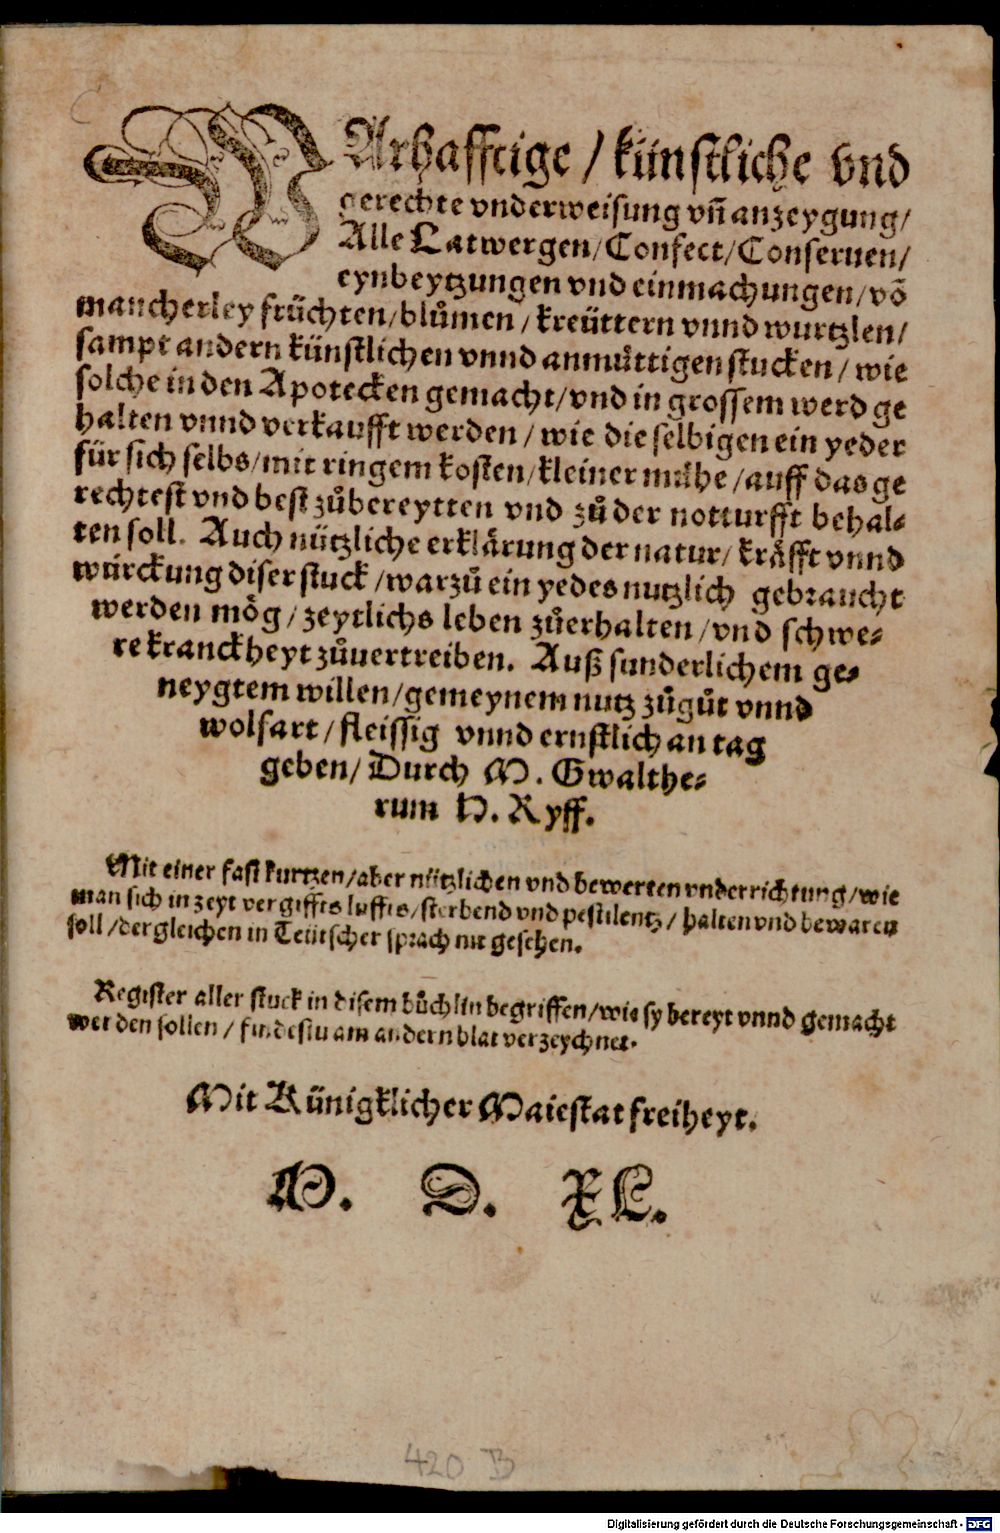 WArhafftige / künstliche vnd
gerechte vnderweisung vñ anzeygung/
Alle Latwergen/Confect/Conseruen/
eynbeytzungen vnd einmachungen/võ
mancherley früchten/blůmen/kreüttern vnnd wurtzlen/
sampt andern künstlichen vnnd anmůttigen stucken/wie
solche in den Apotecken gemacht/vnd in grossem werd ge
halten vnnd verkaufft werden/wie die selbigen ein yeder
für sich selbs/mit ringem kosten/kleiner mühe/auff das ge
rechtest vnd best zůbereytten vnd zů der notturfft behal⸗
ten soll. Auch nützliche erklärung der natur/kräfft vnnd
würckung diser stuck/warzů ein yedes nutzlich gebraucht
werden mög/zeytlichs leben zůerhalten/vnd schwe⸗
re kranckheyt zůuertreiben. Auß sunderlichem ge⸗
neygtem willen/gemeynem nutz zůgůt vnnd
wolfart/fleissig vnnd ernstlich an tag
geben/Durch M. Gwalthe⸗
rum H. Ryff.
Mit einer fast kurtzen/aber nützlichen vnd bewerten vnderrichtung/wie
man sich in zeyt vergiffts luffts/sterbend vnd pestilentz/halten vnd bewaren
soll/dergleichen in Teütscher sprach nit gesehen.
Register aller stuck in disem bůchlin begriffen/wie sy bereyt vnnd gemacht
werden sollen/findestu am andern blat verzeychnet.
Mit Künigklicher Maiestat freiheyt.
M. D. XL.
420 B
Digitalisierung gefördert durch die Deutsche Forschungsgemeinschaft - DFG